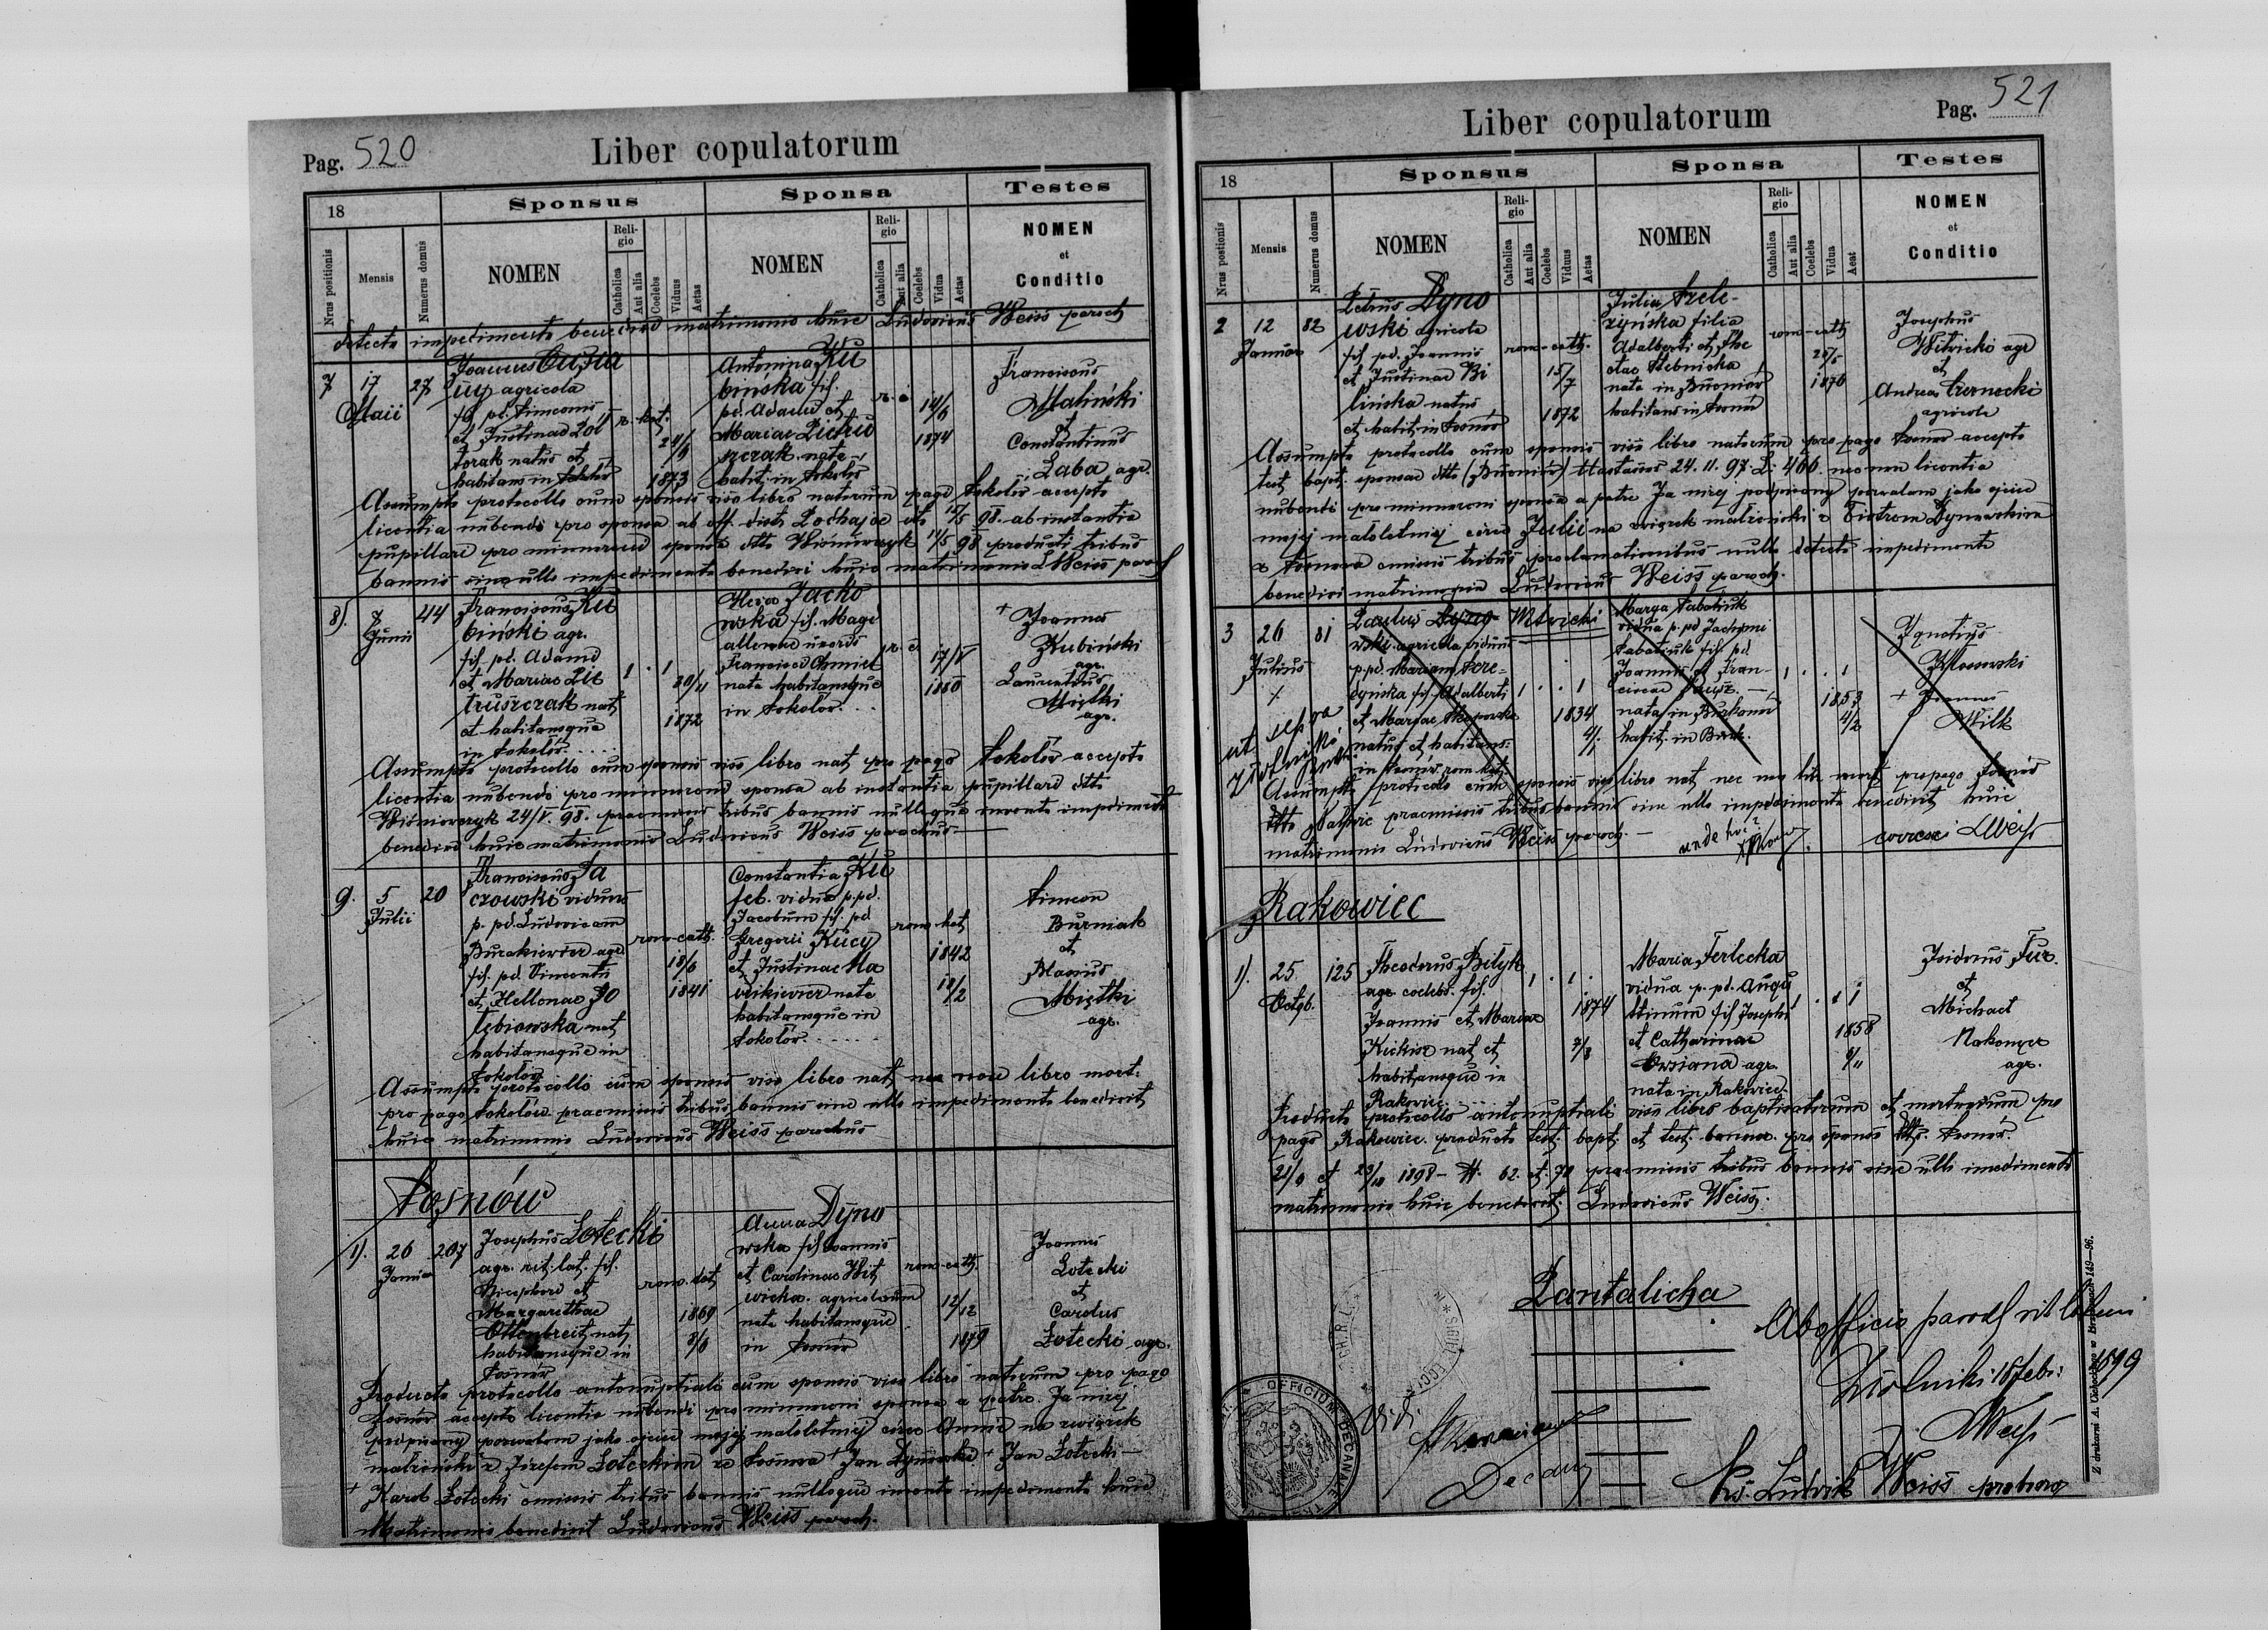 Pag. 520
Liber copulatorum
18
Sponsus
Sponsa
Testes
Nrus positionis
Mensis
Numerus domus
NOMEN
Religio
Catholica
Aut alia
Coelebs
Viduus
Aetas
NOMEN
Religio
Catholica
Aut alia
Coelebs
Vidua
Aetas
NOMEN
et
Conditio
detecto impedimento matrimonio huic Ludovicus Weiss paroch
7 17 27
Maii
Joannes
agricola
fil pd. Simeonis
et Justinae
torak natus et
habitans in Sokolów
24/9
1873
Antonina Ku
bińska fil.
pd. Adami et
Mariae Pietru
szczak nata
habit. in Sokolów
14/6
1874
Franciscus
Maliński
et
Constantinus
Laba agr.
Assumpto protocollo cum sponsis viso libro natorum pago Sokolów accepto
licentia nubendi pro sponsa ab off. distr Podhajce dto 15/5 98. ab instantia
pupillari pro minorend sponsa dtto Wiśniowczyk 11/5 98 producti tribus
bannis sine ullo impedimento benedixi huic matrimonio LWeiss paroch
8). 7 44
Junii
Franciscus Ku
biński agr.
fil. pd. Adami
et Mariae Pie
truszczak nat
et habitansque
in Sokolów
1 . 1
20/11
1872
Jacko
wska fil. Magd
allenae uxoris
Francisci Chmiel
nata habitansque
in Sokolów. . .
r. c
17/V
1880
+ Joannes
Kubiński
agr.
Laurentius
Miętki
agr.
Assumpto protocollo cum sponsis viso libro nat pro pago Sokolów accepto
licentia nubendi pro minorend sponsa ab instantia pupillari dtto
Wiśniowczyk 24/V. 98. praemissis tribus bannis nulloque invento impedimento
benedixi huic matrimonio Ludovicus Weiss parochus
9. 5 20
Julii
Franciscus Ja
czowski viduus
p. pd. Ludovicam
Burakiewicz agr
fil. pd. Vincentii
et Hellenae Go
łębiowska nat
habitansque in
Sokolów
rom-cath.
18/6
1841
Constantia Ku
feb. vidua p. pd.
Jacobum fil. pd
Gregorii Kucy
et Justinae Ma
nata
habitansque in
Sokolów. . . . .
rom-kat
1842
18/2
Simeon
Burniak
et
Blasius
Miętki
agr.
Assumpto protocollo cum sponsis viso libro nat nec non libro mort.
pro pago Sokolów praemissis tribus bannis sine ullo impedimento benedixit
huic matrimonio Ludovicus Weiss parochus
Sosnów
1). 26 207
Januar
Josephus Łotecki
agr. rit. lat. fil.
Nicephori et
Margarethae
Ottenbreit nat
habitansque in
Sosnów
rom. kat
1869
8/6
Anna Dyno
wska fil Joannis
et Carolinae Wit
wicka. agricolarum
nata habitansque
in Sosnów
rom-cath
12/12
1879
Joannes
Łotecki
et
Carolus
Łotecki agr.
Producto protocollo antenuptiali cum sponsis viso libro natorum pro pago
Sosnów accepto licentia nubendi pro minorenni sponsa a patre. Ja niżej
podpisany pozwalam jako ojciec mojej małoletniej córce Annie na związek
małżeński z Józefem Łoteckim ze Sosnowa + Jan Dynowski + Jan Łotecki
+ Karol Łotecki omissis tribus bannis nulloque invento impedimento huic
Matrimonio benedixit Ludovicus Weiss paroch.
Pag. 521
Liber copulatorum
18
Sponsus
Sponsa
Testes
Nrus positionis
Mensis
Numerus domus
NOMEN
Religio
Catholica
Aut alia
Coelebs
Viduus
Aetas
NOMEN
Religio
Catholica
Aut alia
Coelebs
Vidua
Aeat
NOMEN
et
Conditio
2 12 82
Januar
Petrus Dyno
wski agricola
fil pd. Joannis
et Justinae Bi
lińska natus
et habit. in Sosnów
rom-cath.
15/7
1872
Julia Szele-
zyńska filia
Adalberti et The
clae Stebnicka
nata in Burniów
habitans in Sosnów
rom-cath
20/5
1876
Josephus
Witwicki agr
et
Andreas Czernecki
agricola
Assumpto protocollo cum sponsis viso libro natorum pro pago Sosnow accepto
test bapt. sponsae dtto 24. 11. 97. L: 466. nec non licentia
nubendi pro minorenni sponsa a patre Ja niżej podpisany pozwalam jako ojciec
mojej małoletniej córce Julii na związek małżeński z Piotrem Dynowskim
z Sosnowa omissis tribus proclamationibus nullo detecto impedimento
benedixi matrimonio Ludovicus Weiss paroch.
3 26 81
Julius
Paulus Dyno- Witwicki
wski agricola viduus
p.pd. Mariam Szele-
zyńska fil. Adalberti
et Mariae
natus et habitans
in Sosnów rom. kat.
1 . . 1
1834
4/1.
Marya Sabatiuk
vidua p. pd Jachymi
Sabatiuk fil. pd
Joannis et Fran-
ciscae
nata in Burkanów
habit. in Burk.
1 . . 1
1853
4/2
Ignatius
Kłosowski
+ Joannes
Wilk
Assumpto protocollo cum sponsis viso libro nat nec non lib. mort. pro pago Sosnów
praemissis tribus bannis sine ullo impedimento benedixit huic
matrimonio Ludovicus Weiss paroch. —
unde hoc?
correxi LWeiss
Rakowiec
1). 25. 125
Octob.
Theodorus Bilyk
agr. coelebs. fil.
Joannis et Mariae
Kickisz nat et
habitansque in
Rakowiec
1 . 1 .
1874
7/3
Maria Terlecka
vidua p. pd. Augu
stinum fil Josephi
et Catharinae
Owsiana agr.
nata in Rakowiec
. . 1
1858
9/11
Isidorus Fur.
et
Michael
Nakonecz
agr.
Producto protocollo antenuptiali viso libro baptisatorum et mortuorum pro
pago Rakowiec. producto test. bapt. et test. bannor. pro sponso dtto. Sosnów.
21/9 et 23/10 1898 — N. 62. et. 70 praemissis tribus bannis sine ulli imedimento
matrimonio huic benedixit. Ludovicus Weiss.
Pantalicha
Ab officio paroch rit latini
Złotniki 15 febr: 1899
LWeiss
Ks. Ludwik Weiss proboszcz
Vidi
Decanus
OFFICIUM DECANALE
Z drukarni A. Cichockiego w 149—96.